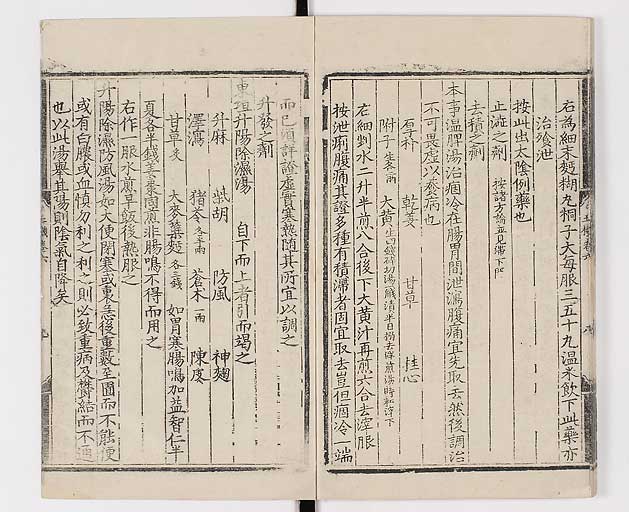 右爲細末麪糊丸桐子大每服三五十丸温米飲下此藥亦
治飱泄
按此出太陰例藥也
止澁之劑 按諸方論並見滯下門
去積之劑
本事温脾湯治痼冷在腸胃間泄瀉腹痛宜先取去然後調治
不可畏虚以養病也
厚朴 乾姜 甘草 桂心
附子 各二兩 大黃
右細剉水二升半煎八合後下大黃汁再煎六合去滓服
按泄痢腹痛其證多種有積滯者固宜取去豈但痼冷一端
而已須詳證虚實寒熱隨其所宜以調之
升發之劑
東垣升陽除濕湯 自下而上者引而竭之
升麻 柴胡 防風 神麹
澤瀉 猪苓 各半兩 蒼朮 一兩 陳皮
甘草 炙 大麥糵麪 各三錢 如胃寒腸鳴加益智仁半
夏各半錢姜棗同煎非腸鳴不得而用之
右作一服水煎早飯後熱服之
升陽除濕防風湯如大便閉塞或裏急後重數至圊而不能便
或有白膿或血愼勿利之利之則必致重病及鬱結而不通
也以此湯擧其陽則陰氣自降矣